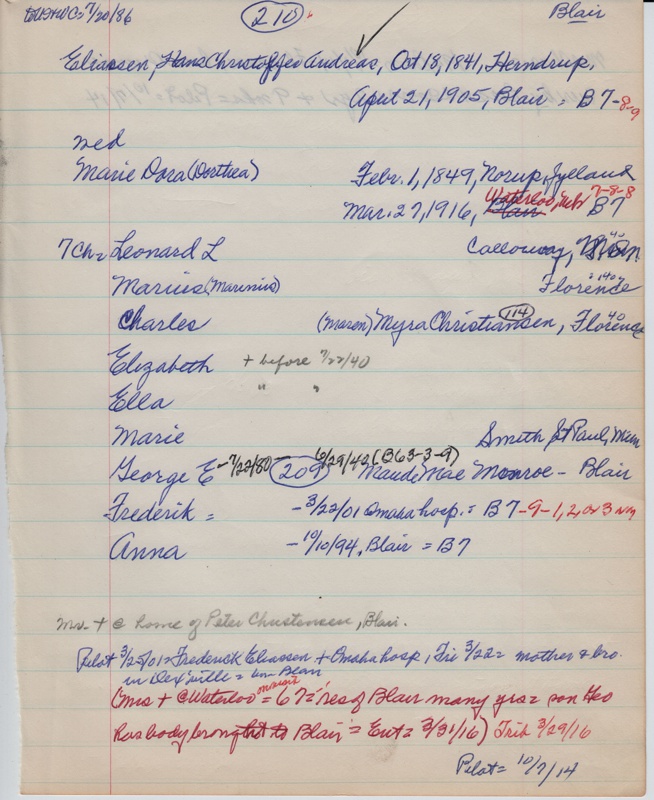 7/20/86 210 Blair
Eliassen, Hans Christoffer Andreas, Oct 18, 1841, Herndrup,
April 21, 1905, Blair = B7-8-9
wed
Marie Dora (Dorthea) Febr. 1, 1849, Norup, Jylland
Mar. 27, 1916, Blair Waterloo, Neb B7 7-8-8
7 Ch = Leonard L Calloway,
Marius (Marinus) Florence
Charles (Maren) Myra Christiansen, 114 Florence 40
Elizabeth + before 7/22/40
Ella " "
Marie Smith St Paul, Minn
George E - 7/22/80 - 209 6/29/42 (B63-3-9) Maude Mae Monroe - Blair
Frederik = - 3/22/01 Omaha hosp. = B7-9-1, 2, or 3 NM
Anna - 10/10/94, Blair = B7
Mrs. + @ home of Peter Christensen, Blair.
Pilot 3/25/01 = Frederick Eliassen + Omaha hosp, Fri 3/22 = mother & bro.
in = Blair
(Mrs + @ Waterloo = 67 = 'res of Blair many yrs = son Geo
has body brought to Blair = Ent = 3/31/16) Trib 3/29/16
Pilot = 10/7/14